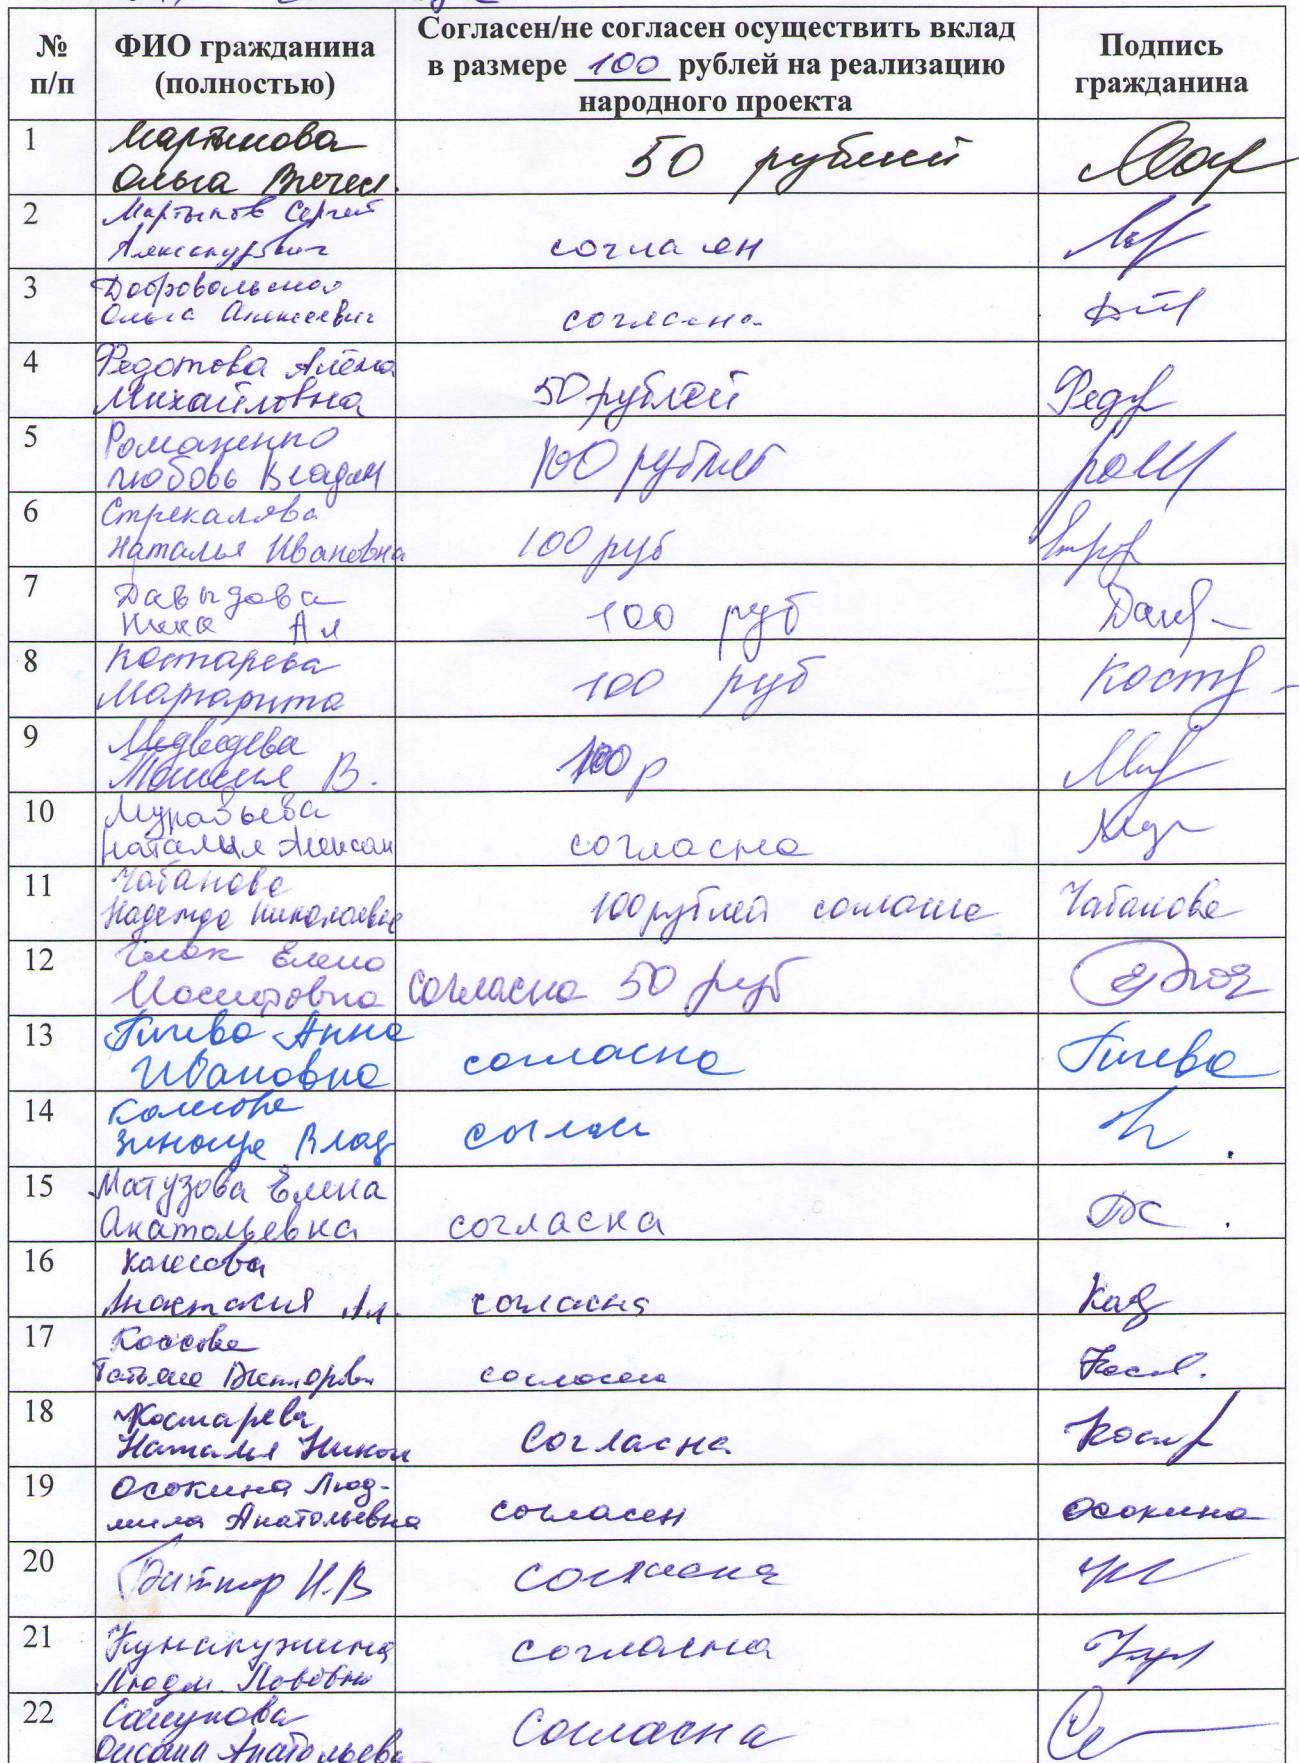 №
п/п
ФИО гражданина
(полностью)
Согласен/не согласен осуществить вклад
в размере 100 рублей на реализацию
народного проекта
Подпись
гражданина
1
Мартынова
Ольга Вячесл.
50 рублей
2
Мартынов Сергей
Александрович
согласен
3
Добровольская
Ольга Алексеевич
согласна
4
Федотова Алёна
Михайловна
50 рублей
Федо
5
Романенко
Любовь Владим
100 рублей
6
Стрекалова
Наталья Ивановна
100 руб
7
Давыдова
Нина Ал
100 руб
8
Костарева
Маргарита
100 руб
Кост
9
Медведева
В.
100 р
10
Муравьева
Наталия Алексан
согласна
11
Чабанова
Надежда Николаевна
100 рублей согласна
Чабанова
12
Елена
Иосифовна
согласна 50 руб
13
Гичева Анна
Ивановна
согласна
Гичева
14
Зинаида Влад
соглас
15
Матузова Елена
Анатольевна
согласна
16
Колесова
Анастасия Ал.
согласна
17
Коссова
Татьяна Викторовн
согласна
18
Костарева
Наталья Никол
Согласна
19
Осокина Люд-
мила Анатольевна
согласен
Осокина
20
Н.В
согласна
21
Кунакужина
Людм. Львовна
согласна
22
Сапунова
Оксана Анатольевна
Согласна